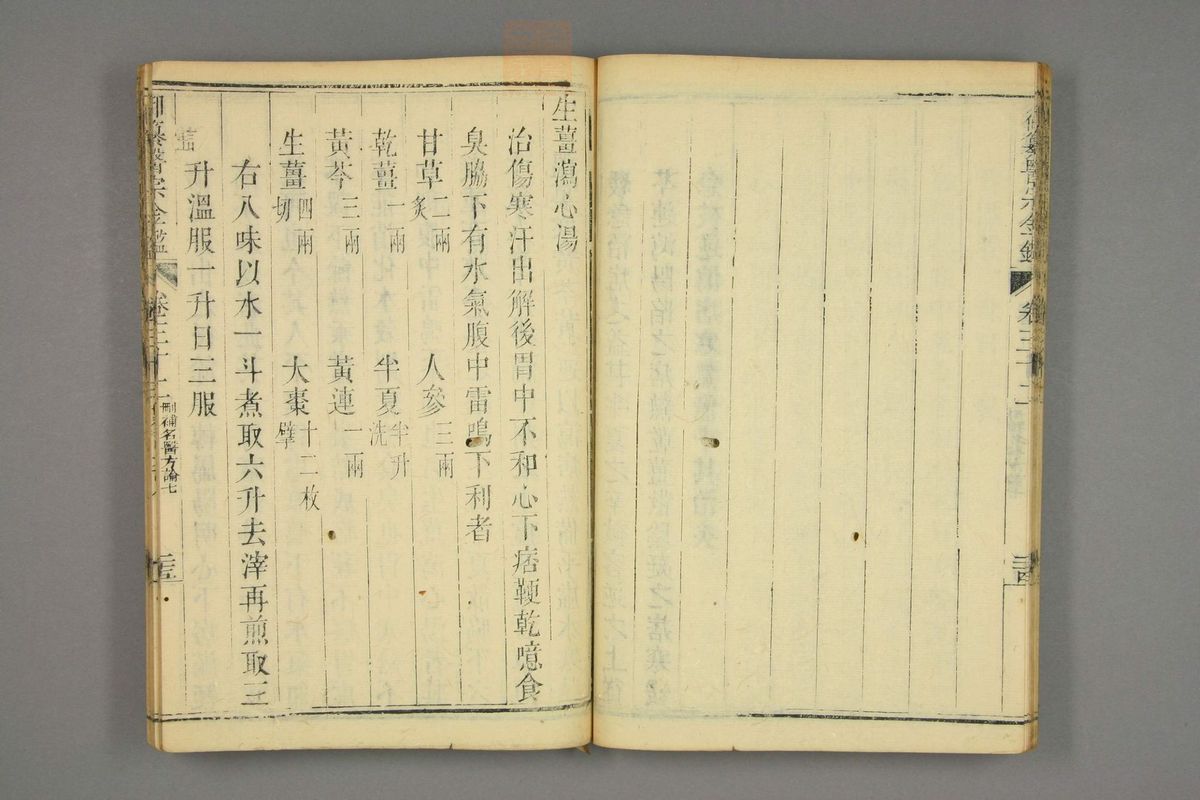 御纂醫宗金鑑 卷三十二
生薑瀉心湯
治傷寒汗出解後胃中不和心下痞鞕乾噫食
臭脇下有水氣腹中雷鳴下利者
甘草二兩炙 人參三兩
乾薑一兩 半夏半升洗
黃芩三兩 黃連一兩
生薑四兩切 大棗十二枚擘
右八味以水一斗煮取六升去滓再煎取三
升溫服一升日三服
御纂醫宗金鑑 卷三十二 刪補名醫方論七